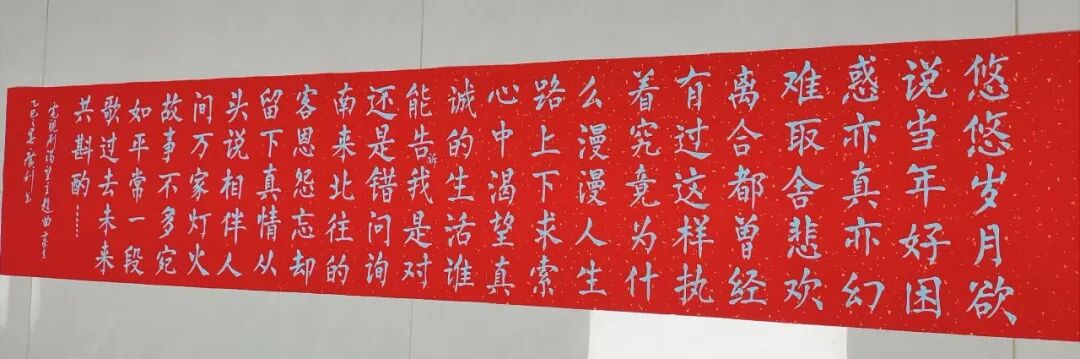 悠悠岁月欲
说当年好困
惑亦真亦幻
难取舍悲欢
离合都曾经
有过这样执
着究竟为什
么漫漫人生
路上下求索
心中渴望真
诚的生活谁
能告诉我是对
还是错问询
南来北往的
客恩怨忘却
留下真情从
头说相伴人
间万家灯火
故事不多宛
如平常一段
歌过去未来
共斟酌……
电视剧渴望主题曲
乙巳